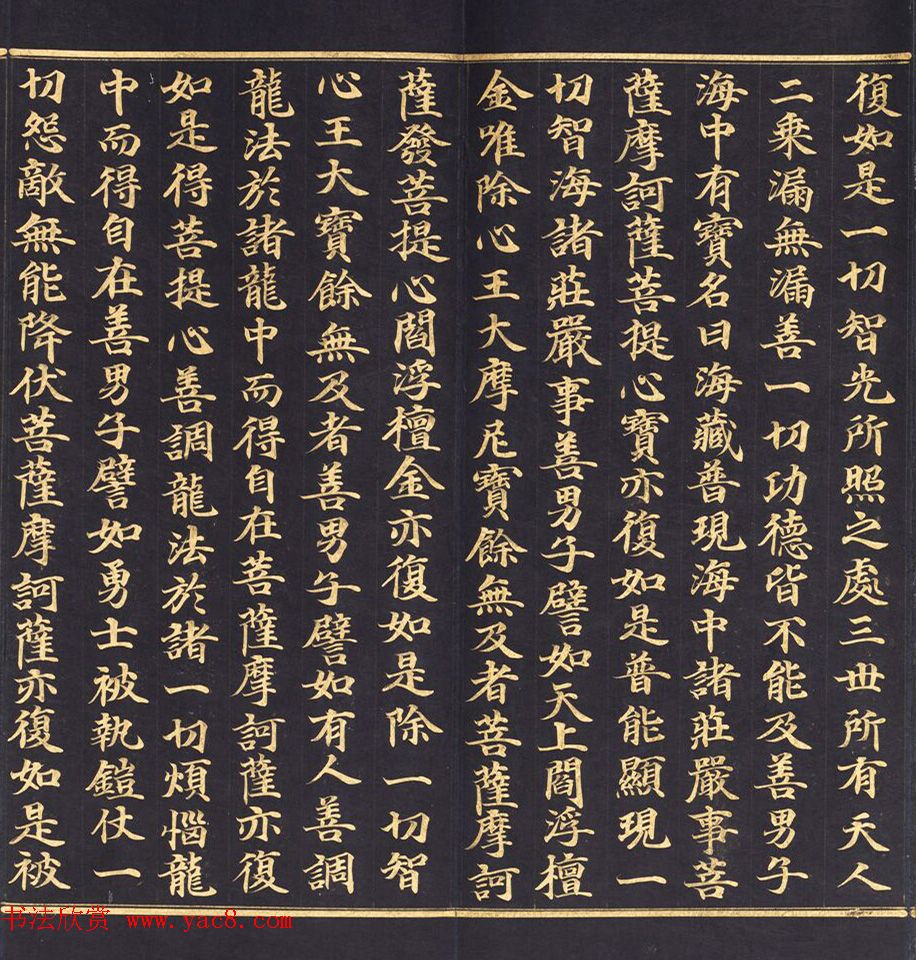 復如是一切智光所照之處三世所有天人
二乘漏無漏善一切功德皆不能及善男子
海中有寶名曰海藏普現海中諸莊嚴事菩
薩摩訶薩菩提心寶亦復如是普能顯現一
切智海諸莊嚴事善男子譬如天上閻浮檀
金唯除心王大摩尼寶餘無及者菩薩摩訶
薩發菩提心閻浮檀金亦復如是除一切智
心王大寶餘無及者善男子譬如有人善調
龍法於諸龍中而得自在菩薩摩訶薩亦復
如是得菩提心善調龍法於諸一切煩惱龍
中而得自在善男子譬如勇士被執鎧仗一
切怨敵無能降伏菩薩摩訶薩亦復如是被
书法欣赏 www.yac8.com